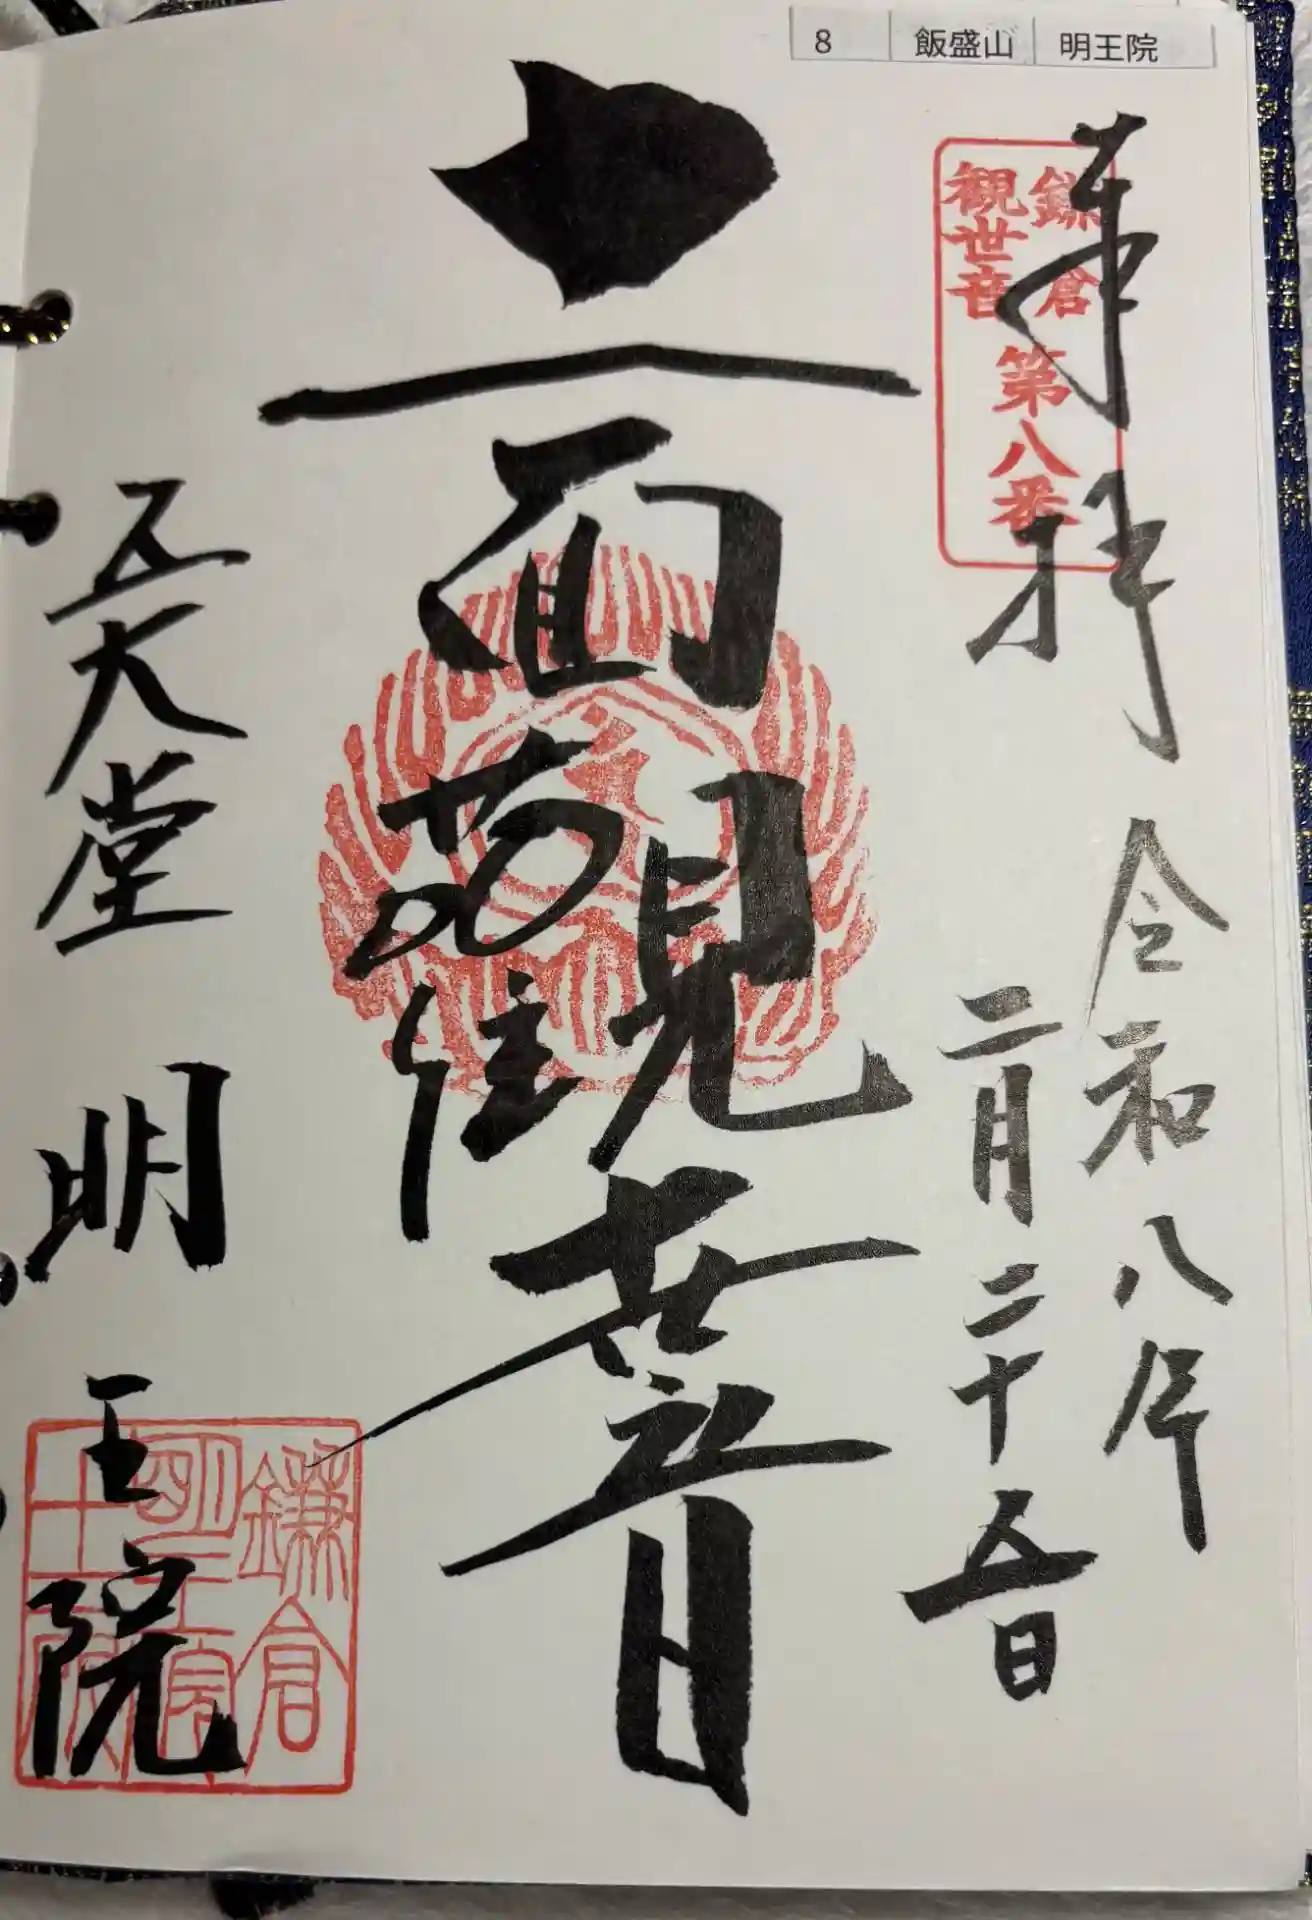 8 飯盛山 明王院
奉拝
鎌倉
観世音
第八番
令和八年
二月二十五日
十一面観世音
五大堂 明王院
鎌倉
明王院